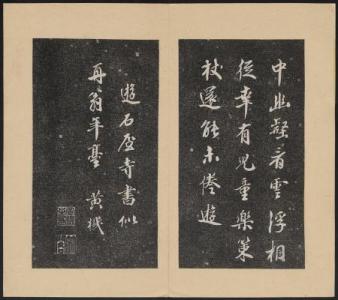 中幽疑看雲浮相
從幸有兒童樂策
杖還能未倦遊
遊石屋寺書似
再翁年臺 黃機